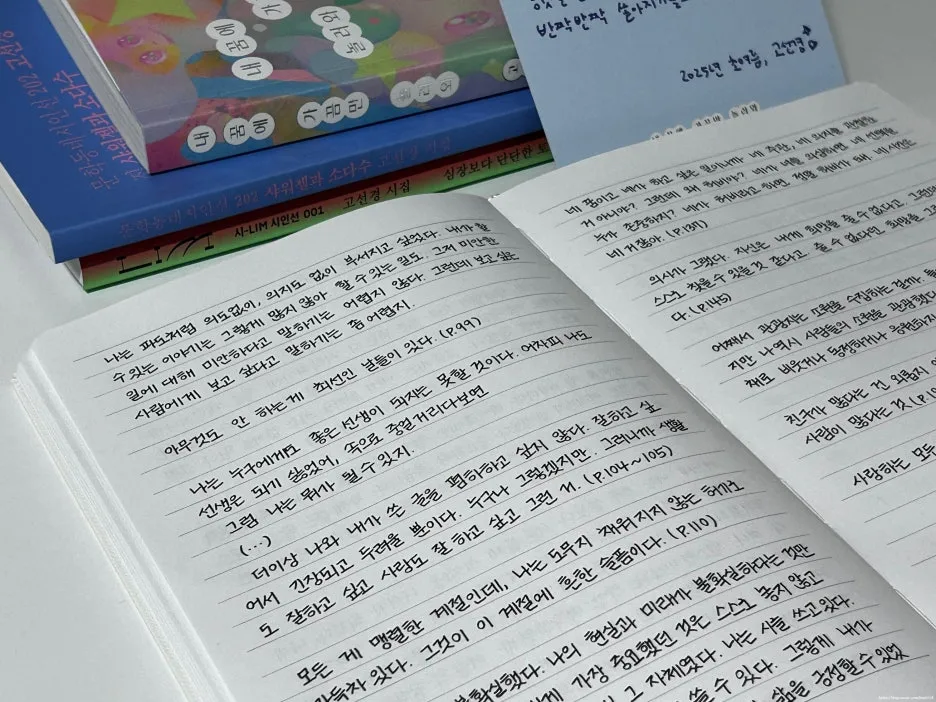 내 꿈에 가
놀러와
내 꿈에 가끔만
문학동네시인선 202 고선경 시집
샤워젤과 소다수
문학동네시인선 202 샤워젤과 소다수 고선경 시집
시-LIM 시인선 001 고선경 시집 심장보다 단단한 토
반짝반짝 쏟아지기를
2025년 초여름, 고선경
나는 파도처럼 의도없이, 의지도 없이 부서지고 싶었다. 내가 할
수 있는 이야기는 그렇게 많지 않아 할 수 있는 일도. 그저 미안한
일에 대해 미안하다고 말하기는 어렵지 않다. 그런데 보고 싶은
사람에게 보고 싶다고 말하기는 좀 어렵지.
아무것도 안 하는게 최선인 날들이 있다. (P.99)
나는 누구에게도 좋은 선생이 되지는 못할 것이다. 어차피 나도
선생은 되기 싫었어, 속으로 중얼거리다보면
그럼 나는 뭐가 될 수 있지.
(…)
더이상 나와 내가 쓴 글을 폄하하고 싶지 않다. 잘하고 싶
어서 긴장되고 두려울 뿐이다. 누구나 그렇겠지만. 그러니까 생활
도 잘하고 싶고 사랑도 잘 하고 싶고 그런 거. (P.104~105)
모든 게 맹렬한 계절인데, 나는 도무지 채워지지 않는 허기로
가득차 있다. 그것이 이 계절에 흔한 슬픔이다. (P.110)
불확실했다. 나의 현실과 미래가 불확실하다는 것만
가장 중요했던 것은 스스로 놓지 않고
그 자체였다. 나는 시를 쓰고 있다.
쓸 수 있다. 그렇게 내가
삶을 긍정할 수 있었
네 꿈이고 네가 하고 싶은 일이니까 네 주관, 네
거 아니야? 그런데 왜 허비야? 네가 너를
누가 존중하지? 네가 허비라고 하면 정말 허비가 돼. 네 시간은
네 거잖아. (P.131)
의사가 그랬다. 자신은 내게 희망을 줄 수 없다고. 그런데
스스로 찾을 수 있을 것 같다고. 줄 수 없다면 희망을 그
다. (P.145)
어째서 관광지는 소원을 수집하는 걸까.
지만 나 역시 사람들의 소원을 관광했다
채로 비웃거나 동정하거나 응원하지
친구가 많다는 건 외롭지
사람이 많다는 것 (P.1
사랑하는 모두